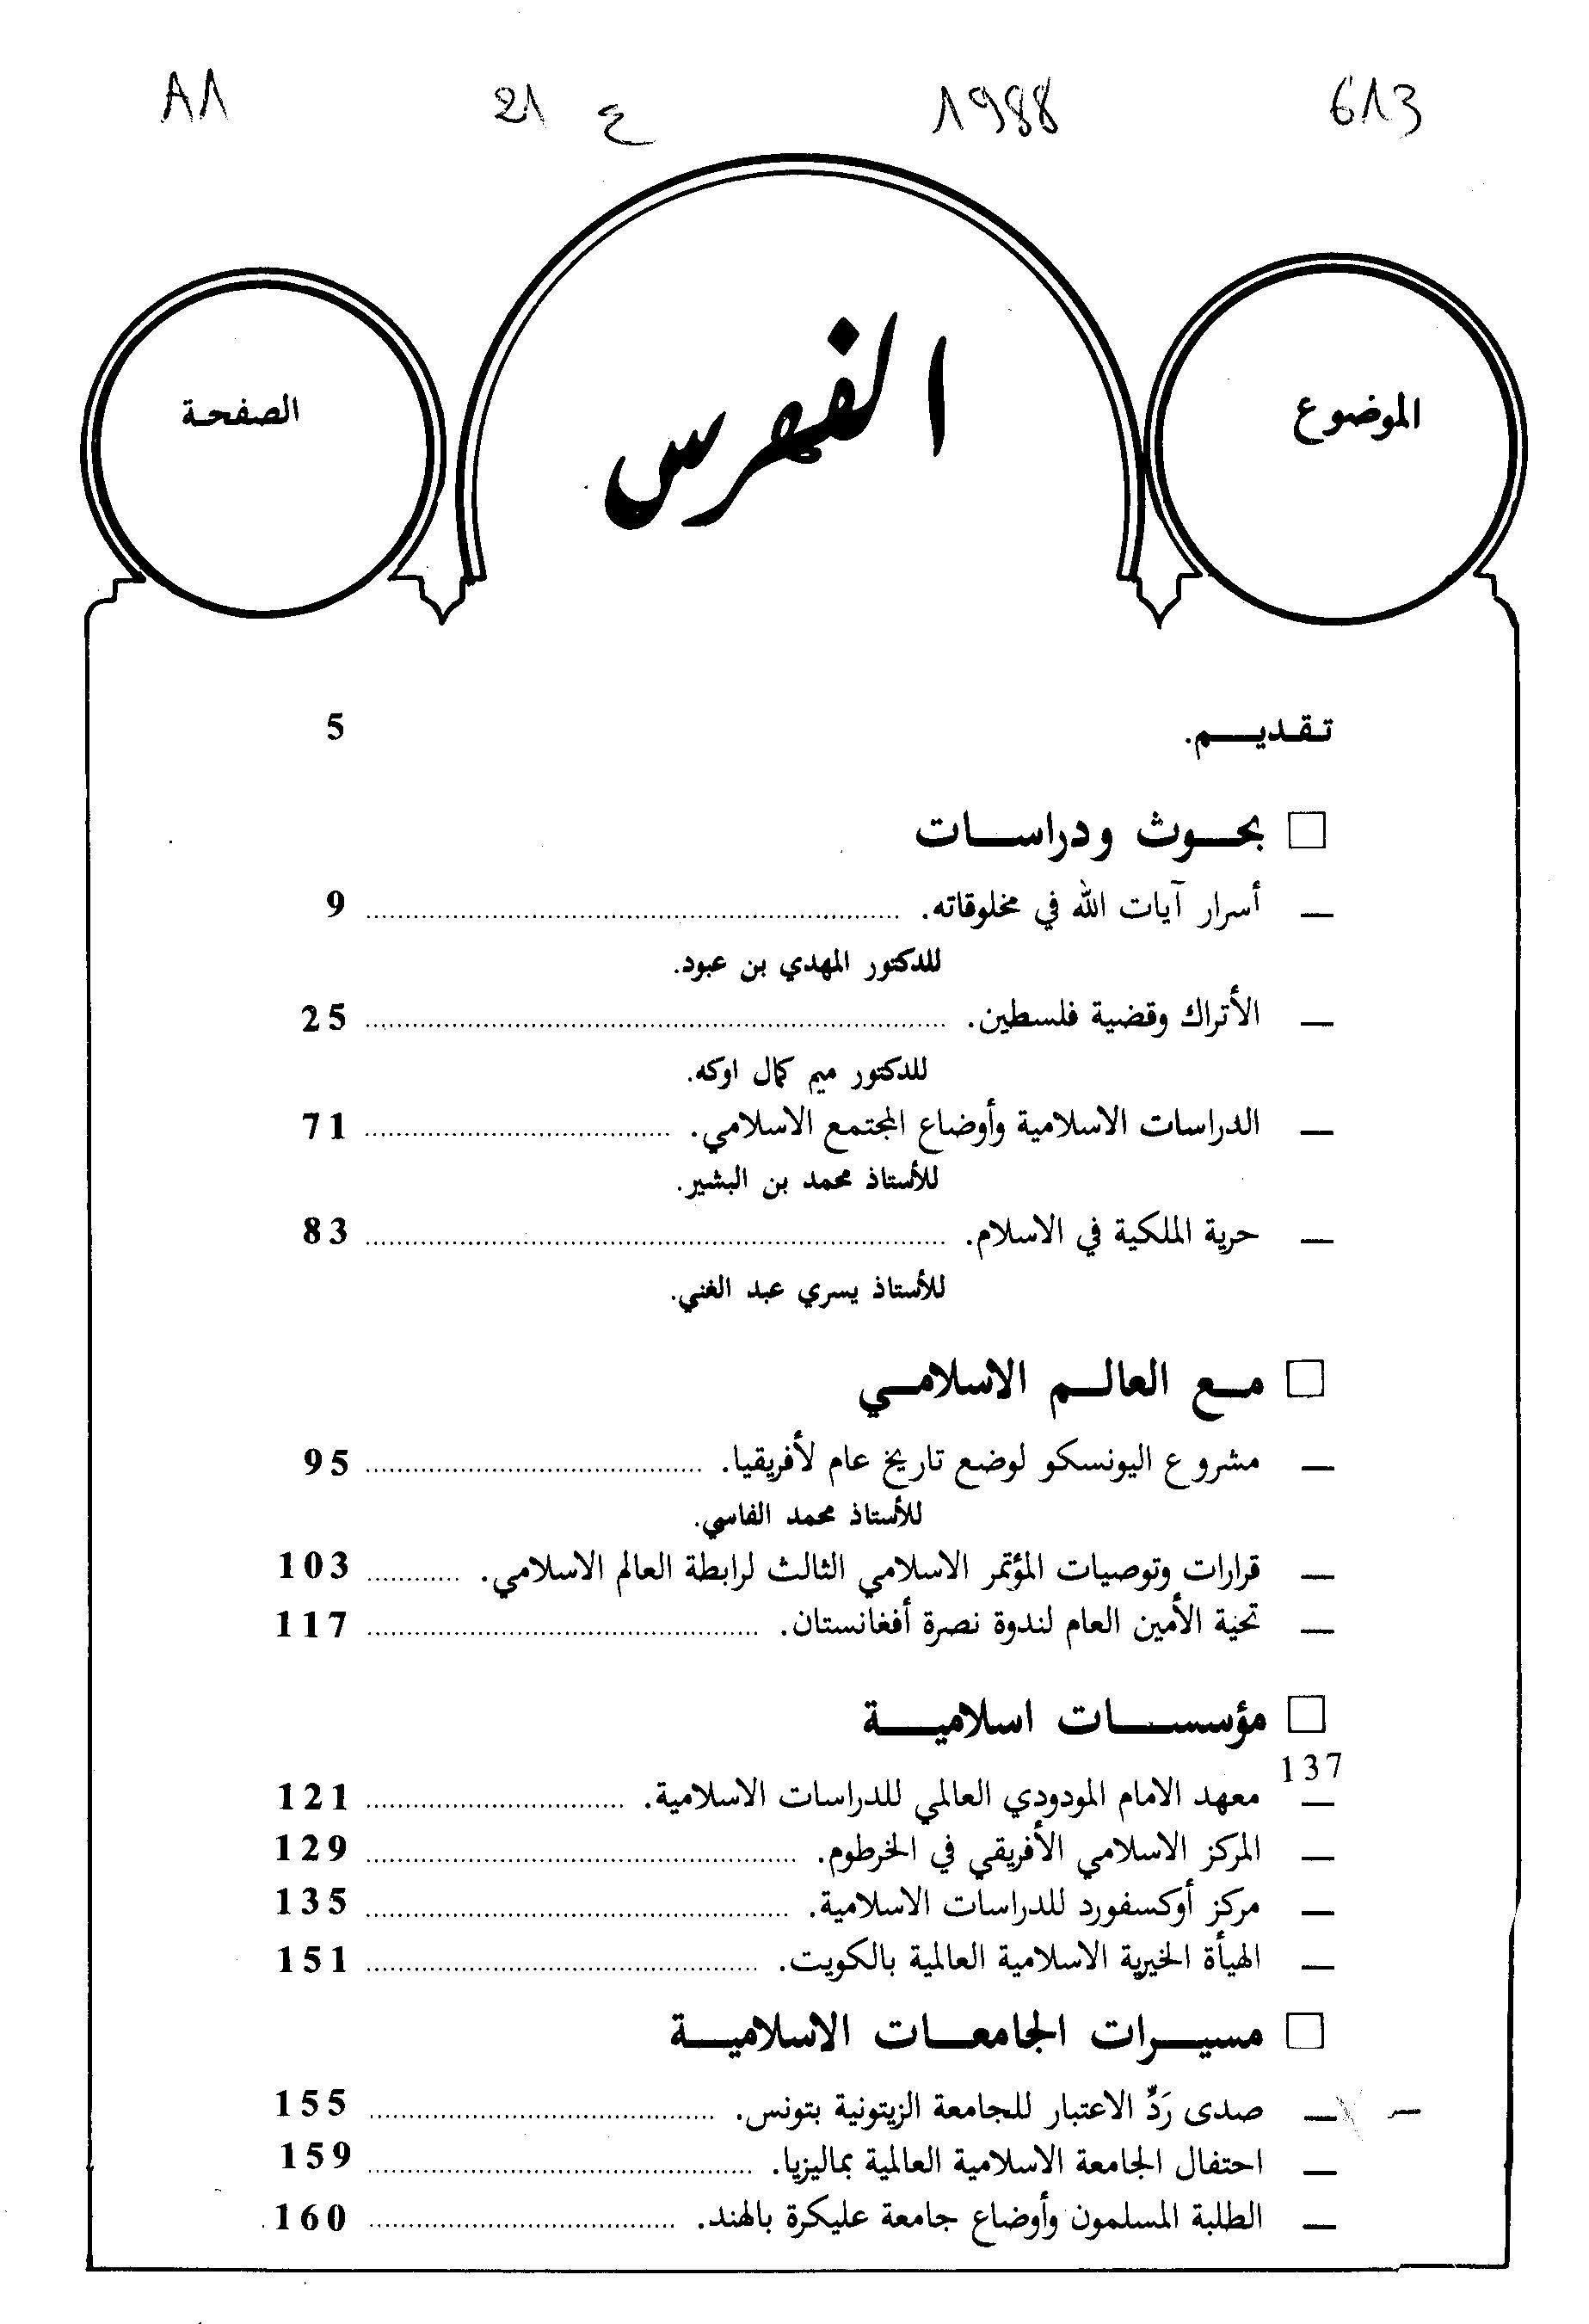 613 1988 ع 21 A1
الفهرس
الموضوع الصفحة
تقديم. 5
□ بحوث ودراسات
— أسرار آيات الله في مخلوقاته. ........ 9
للدكتور المهدي بن عبود.
— الأتراك وقضية فلسطين. ........ 25
للدكتور ميم كمال اوكه.
— الدراسات الاسلامية وأوضاع المجتمع الاسلامي. ........ 71
للأستاذ محمد بن البشير.
— حرية الملكية في الاسلام. ........ 83
للأستاذ يسري عبد الغني.
□ مع العالم الاسلامي
— مشروع اليونسكو لوضع تاريخ عام لأفريقيا. ........ 95
للأستاذ محمد الفاسي.
— قرارات وتوصيات المؤتمر الاسلامي الثالث لرابطة العالم الاسلامي. ........ 103
— تحية الأمين العام لندوة نصرة أفغانستان. ........ 117
□ مؤسسات اسلامية
137
— معهد الامام المودودي العالمي للدراسات الاسلامية. ........ 121
— المركز الاسلامي الأفريقي في الخرطوم. ........ 129
— مركز أوكسفورد للدراسات الاسلامية. ........ 135
— الهيأة الخيرية الاسلامية العالمية بالكويت. ........ 151
□ مسيرات الجامعات الاسلامية
— صدى رَدِّ الاعتبار للجامعة الزيتونية بتونس. ........ 155
— احتفال الجامعة الاسلامية العالمية بماليزيا. ........ 159
— الطلبة المسلمون وأوضاع جامعة عليكرة بالهند. ........ 160